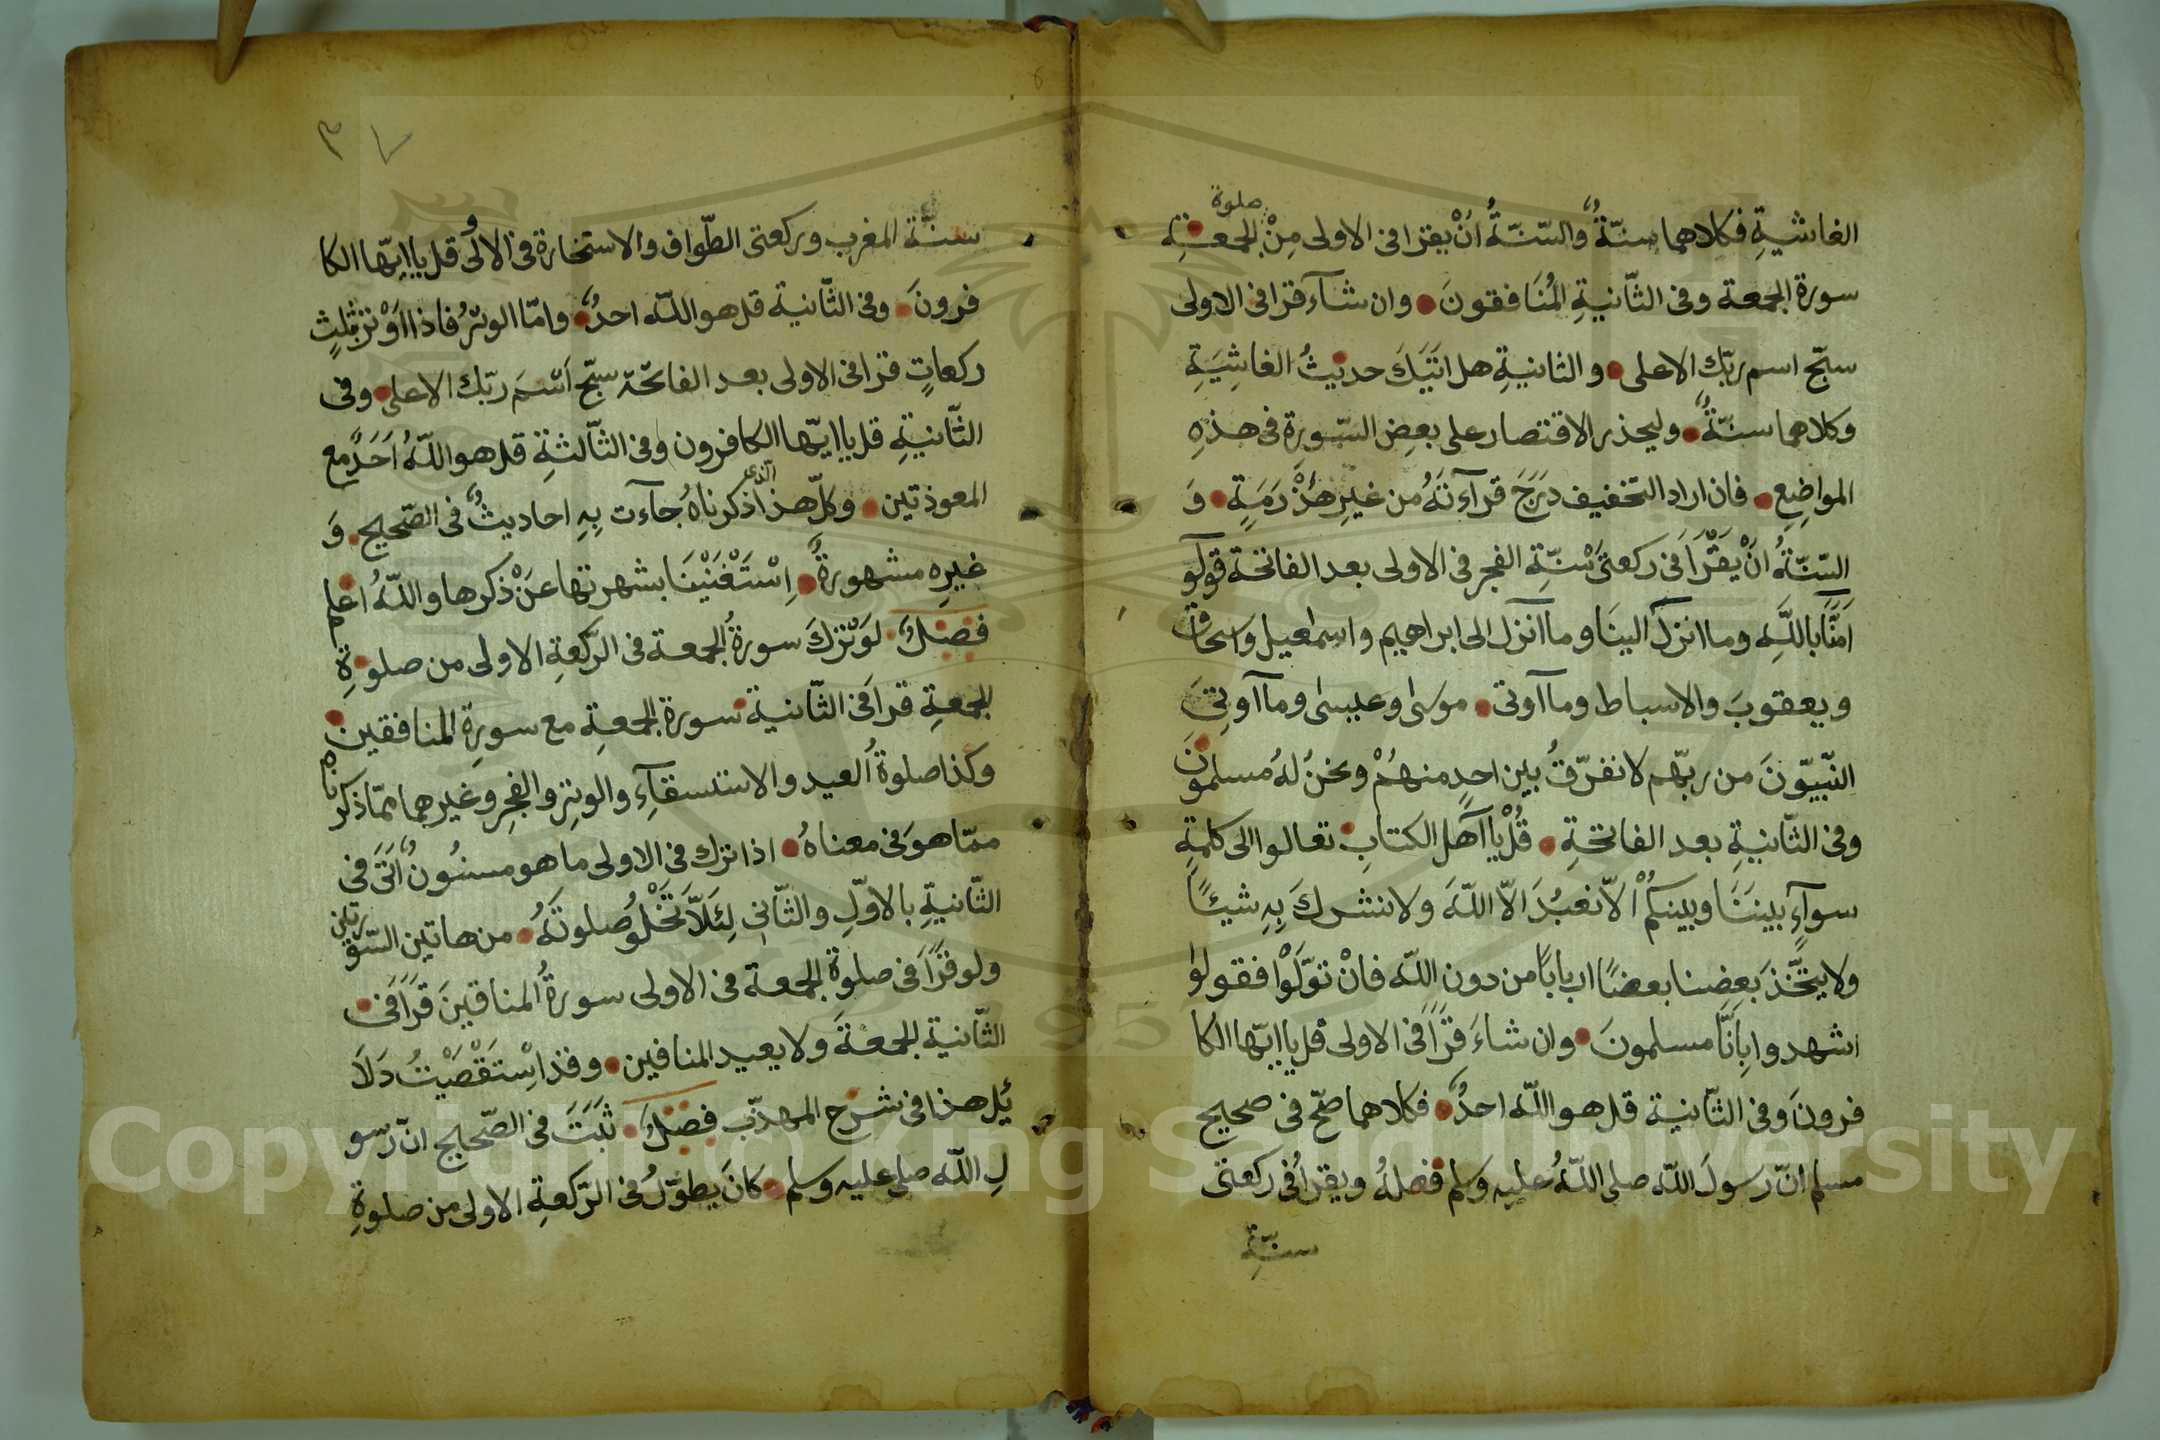 الغاشيةِ فكلاهما سنّةٌ والسّنّةُ اَنْ يقرا فى الاولى مِنْ صلوة الجمعةِ
سورة الجمعة وفى الثّانيةِ المُنَافقونَ وان شآء قرا فى الاولى
سبّح اسم ربّك الاعلى والثانيةِ هل اتيك حديثُ الغاشِيَةِ
وكلاهما سنّةٌ وليحذر الاقتصار على بعضِ السّورةِ فى هذهِ
المواضِعِ فان اراد التّخفيف دَرَجَ قرآءتَهُ من غيرِ هَذْرَمَةٍ وَ
السّنّةُ انْ يَقْرَاَ فى ركعتىْ سُنّةِ الفجر فى الاولى بعد الفاتحة قولوآ
آمَنَّا باللّهِ وما انزلَ الينَا وما انزل الى ابراهيم واسمٰعيل واسحاق
ويعقوبَ والاسباط وما اوتى موسٰى وعيسٰى وما اوتِىَ
النّبيّونَ من ربّهم لا نفرّقُ بين احدٍ منهُمْ ونحنُ لهُ مسلمونَ
وفى الثّانيةِ بعد الفاتحةِ قُلْ يا آهل الكتابِ تعالوا الى كلمةٍ
سوآءٍ بيننَا وبينكُمْ اَلّا نعبُدَ الّا اللّهَ ولا نشركَ بِهِ شيئًا
ولا يتّخذَ بعضنا بعضًا اربابًا من دون اللّه فانْ تولّوْا فقولوا
اشهدوا بِاَنَّا مسلمونَ وان شاءَ قرَاَ فى الاولى قل يا ايّها الكا
فرونَ وفى الثّانية قل هو اللّه احدٌ فكلاهما صحّ فى صحيح
مسلم انّ رسولَ اللّه صلى اللّهُ عليه وسلم فعلهُ ويقراُ فى ركعتى
سنّةِ
٣٧
سنّة المغرب وركعتى الطّواف والاستخارة فى الاولٰى قل يا ايّها الكا
فرونَ وفى الثّانية قل هو اللّه احدٌ وامّا الوترُ فاذا اَوْتر بثلٰثِ
ركعاتٍ قرا فى الاولى بعد الفاتحة سبّح اسْمَ ربّك الاعلى وفى
الثّانيةِ قل يا ايّها الكافرون وفى الثّالثةِ قل هو اللّهُ اَحَدٌ مع
المعوذتين وكلّ هذا الّذى ذكرناهُ جآءت بِهِ احاديثٌ فى الصّحيح وَ
غيرِه مشهورةٌ اِسْتَغْنَيْنَا بشهرتها عَنْ ذكرها واللّهُ اعلم
فصلٌ لَوْ تركَ سورةُ الجمعة فى الرّكعةِ الاولى من صلوةِ
الجمعةِ قراَ فى الثّانية سورة الجمعةِ مع سورةِ المنافقين
وكذا صلوةُ العيد والاستسقآءِ والوترِ والفجرِ وغيرهما ممّا ذكرناه
ممّا هوَ فى معناهُ اذا ترك فى الاولى ما هو مسنُونٌ اَتَى فى
الثّانيةِ بالاوّلِ والثّانى لِئَلَّا تَخْلُو صلوتَهُ من هاتين السّورتين
ولو قرَاَ فى صلوةِ الجمعة فى الاولى سورةُ المنافقينَ قرَاَ فى
الثّانية الجمعةَ ولا يعيد المنافين وقد اِسْتَقْصَيْتُ دَلَا
ئِل هذا فى شرح المهذّب فصلٌ ثَبَتَ فى الصّحيح انّ رسو
لِ اللّه صلى عليه وسلم كانَ يطوّلُ فى الرّكعةِ الاولى من صلوةِ
Copyright © King Saud University